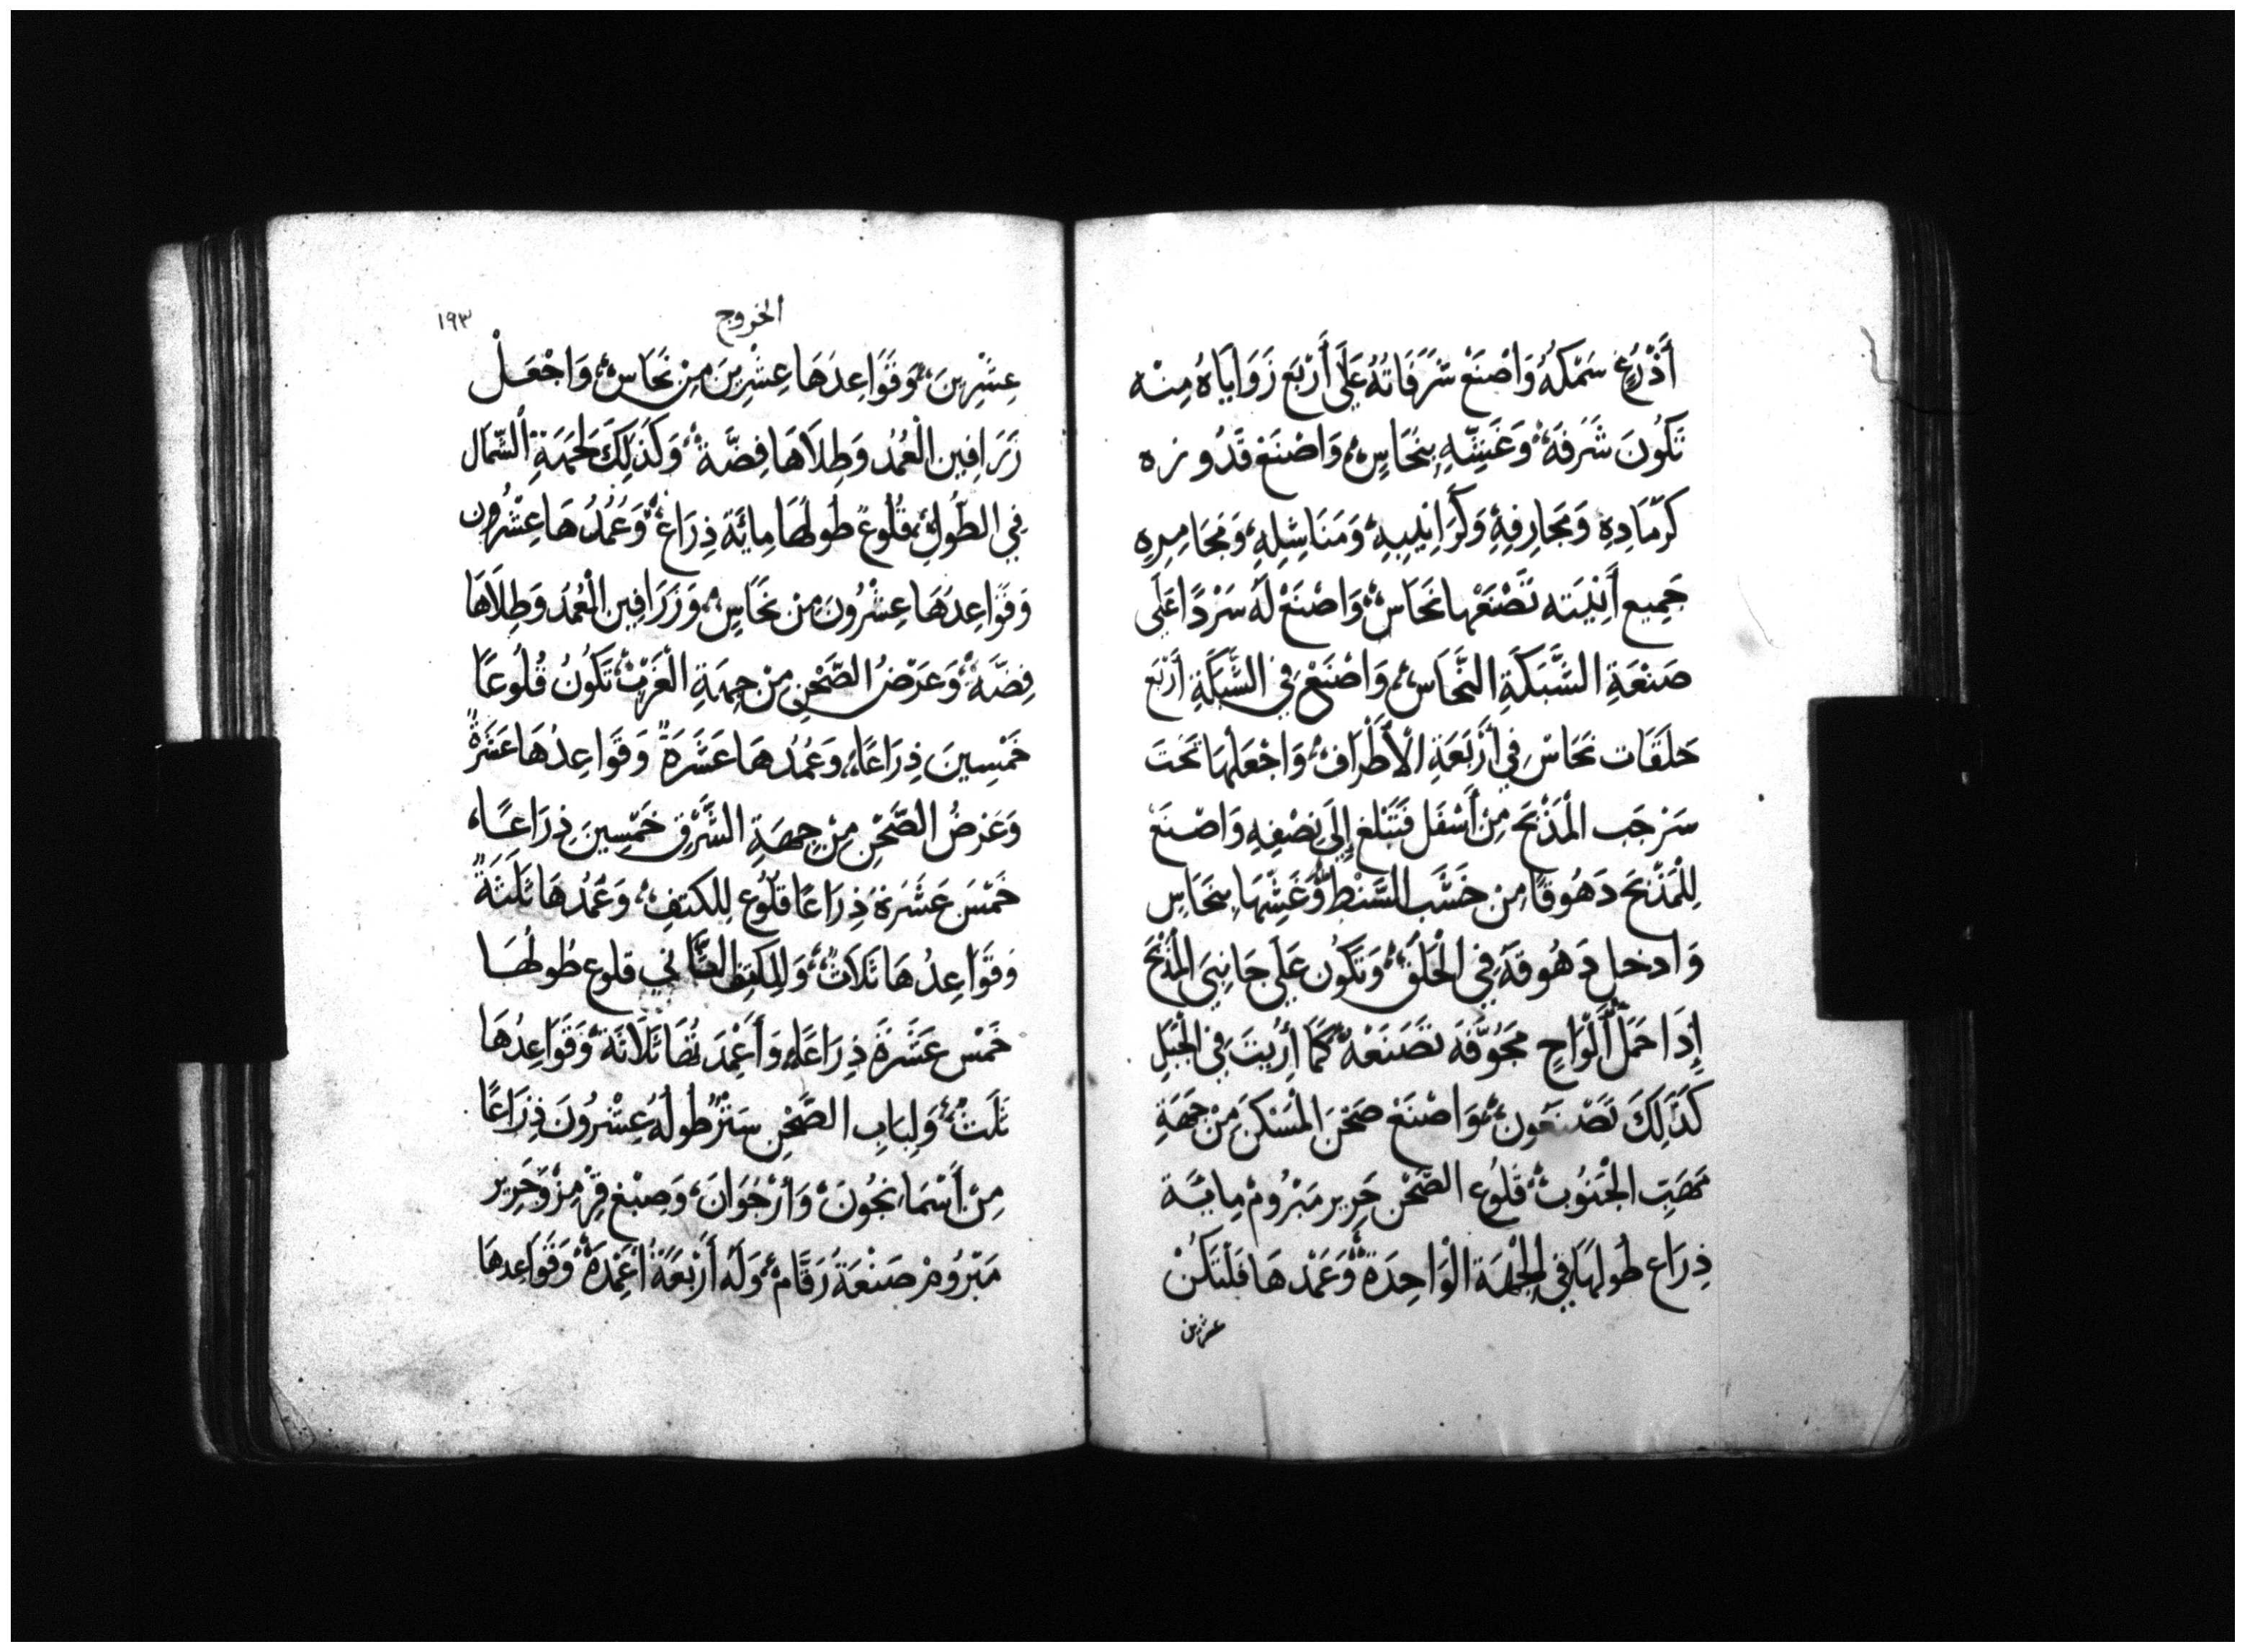 أَذْرُعٍ سَمْكُهُ وَاصْنَعْ شَرَفَاتُهُ عَلَى أَرْبَع زَوَايَاهُ مِنْه
تَكُونَ شَرَفَهُ وَغَشِّهِ بِنُحَاسٍ وَاصْنَعْ قَدُوره
كرّمَادِهِ وَمَجَارِفِهِ وَكَرَانِيبِهِ وَمَنَاشِلِهِ وَمَجَامِرِهِ
جَمِيع أَنِيَتِه تَصْنَعْهَا نَحَاس وَاصْنَعْ لَهَ سَرْدًا عَلَى
صَنْعَةِ الشَّبَكَةِ النَّحَاس وَاصْنَعْ فِي الشَّبَكَةِ أَرْبَع
حَلَقَات نحَاسْ فِي أَرْبَعَةِ الْأَطْرَاف وَاجْعَلْهَا تَحْتَ
سَرجَب الْمَذْبَحَ مِنْ أَسْفَل فَتَبْلغ إِلَى نِصْفِهِ وَاصْنَعْ
لِلْمَذْبَحَ دَهُوقًا مِن خَشَب السَّنْطِ وَغَشِّهَا بِنحَاسٍ
وَادخل دَهُوقَهُ فِي الْحَلَقِ وَتَكُون عَلَى جَانِبَيَ الْمَذْبَحَ
إِذَا حَمَلَ أَلْوَاحٍ مُجَوَّفَه تَصْنَعْهُ كَمَا أُرِيتَ فِي الْجَبَلِ
كَذَلِكَ تَصْنَعُون وَاصْنَعْ صَحْنَ الْمَسْكَن مِنْ جِهَةِ
مَهَبِّ الْجَنُوبِ قلُوع الصَّحْن حَرِير مَبْرُوم مِايَة
ذِرَاع طُولهَا فِي الْجِهَة الْوَاحِدَة وَعَمْدهَا فَلْتَكُنْ
عشرين
١٩٣
الخروج
عِشْرِينَ وَقَوَاعِدَهَا عِشْرِينَ مِنْ نُحَاس وَاجْعَلْ
زَرَافِين الْعُمُد وَطِلَاهَا فِضَّة وَكَذَلِكَ لجهَةِ الشّمَال
فِي الطُّولِ قُلُوع طُولهَا مِايَة ذِرَاع وَعُمُدُهَا عِشْرُون
وَقَوَاعِدهَا عِشْرُونَ مِنْ نحَاسٍ وَزَرَافِين الْعُمُدَ وَطِلَاهَا
فِضَّه وَعَرْضُ الصَّحْنِ مِنْ جِهَةِ الْغَرْب تَكُونُ قُلُوعًا
خَمْسِينَ ذِرَاعًا وَعُمُدهَا عَشَرَةً وَقَوَاعِدُهَا عَشَرَةً
وَعَرْضُ الصَّحْنِ مِنْ جِهَةِ الشَّرْقِ خَمْسِينَ ذِرَاعًا
خَمْسَ عَشْرَة ذِرَاعًا قلُوع لِلكتفِ وَعُمُدهَا ثَلَثَةً
وَقَوَاعِدُهَا ثَلَاث وَلِلكتف الثَّانِي قلوع طُولهَا
خَمْس عَشْرَةَ ذِرَاعًا وَأَعْمِدَتُهَا ثَلَاثَة وَقَوَاعِدُهَا
ثَلَث وَلِبَابِ الصَّحْنِ سَتْرٌ طُولُهُ عِشْرُونَ ذِرَاعًا
مِنْ أَسْمَانجُون وَأَرْجَوَان وَصِبْغ قِرْمِز وَحَرِير
مَبْرُومْ صَنْعَةُ رَقَّام وَلَه أَرْبَعَة أَعْمِدَه وَقَوَاعِدهَا